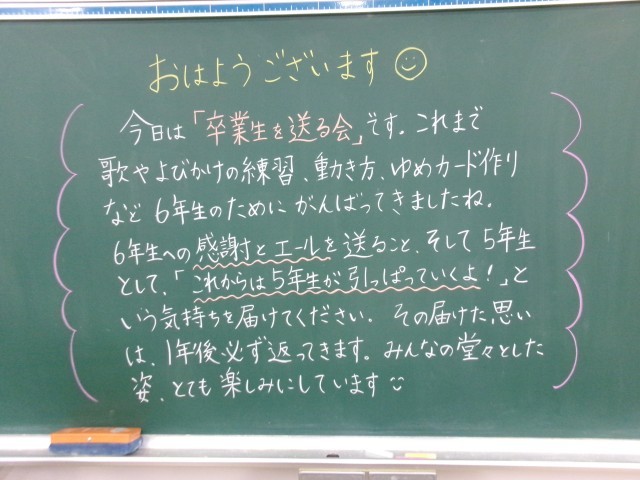 おはようございます
今日は「卒業生を送る会」です。これまで
歌やよびかけの練習、動き方、ゆめカード作り
など6年生のためにがんばってきましたね。
6年生への感謝とエールを送ること、そして5年生
として、「これからは5年生が引っぱっていくよ!」と
いう気持ちを届けてください。その届けた思い
は、1年後必ず返ってきます。みんなの堂々とした
姿、とても楽しみにしています